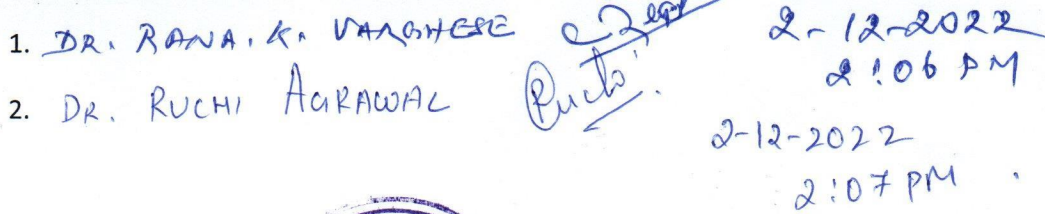 1. DR. RANA. K. VARGHESE 2-12-2022
2:06 PM
2. DR. RUCHI AGRAWAL Ruchi
2-12-2022
2:07 PM